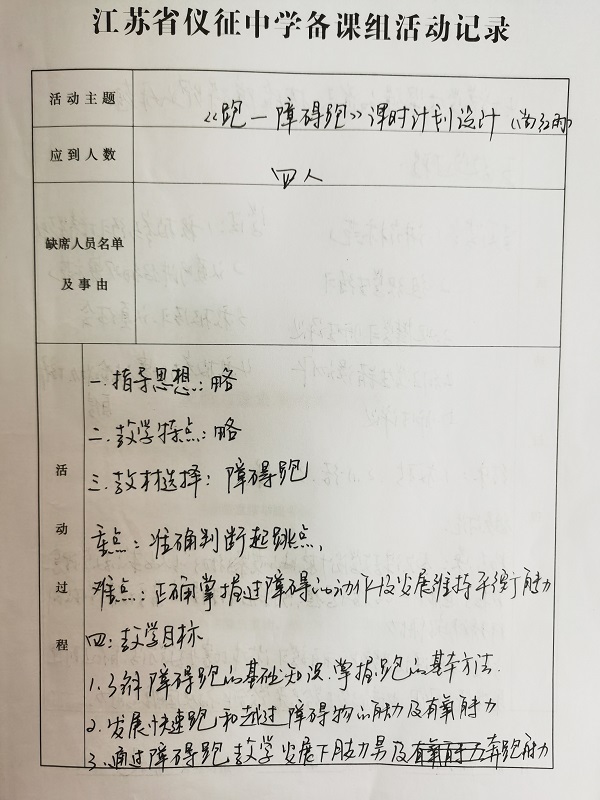 江苏省仪征中学备课组活动记录
活动主题
《跑—障碍跑》课时计划设计
应到人数
四人
缺席人员名单
及事由
活动过程
一.指导思想:略
二.教学特点:略
三.教材选择:障碍跑
重点:准确判断起跳点,
难点:正确掌握过障碍的动作及发展维持平衡能力
四:教学目标
1.了解障碍跑的基础知识.掌握跑的基本方法.
2.发展快速跑和越过障碍物的能力及有氧能力
3.通过障碍跑教学发展下肢力量及奔跑能力